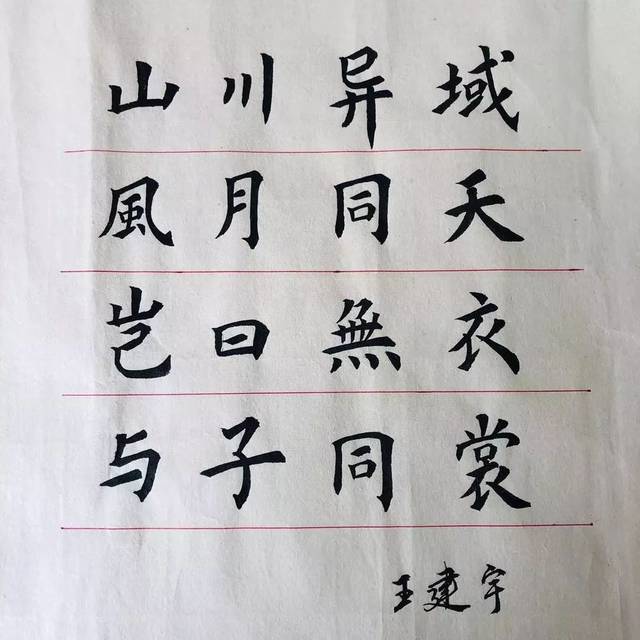 山川异域
風月同天
岂曰無衣
与子同裳
王建宇